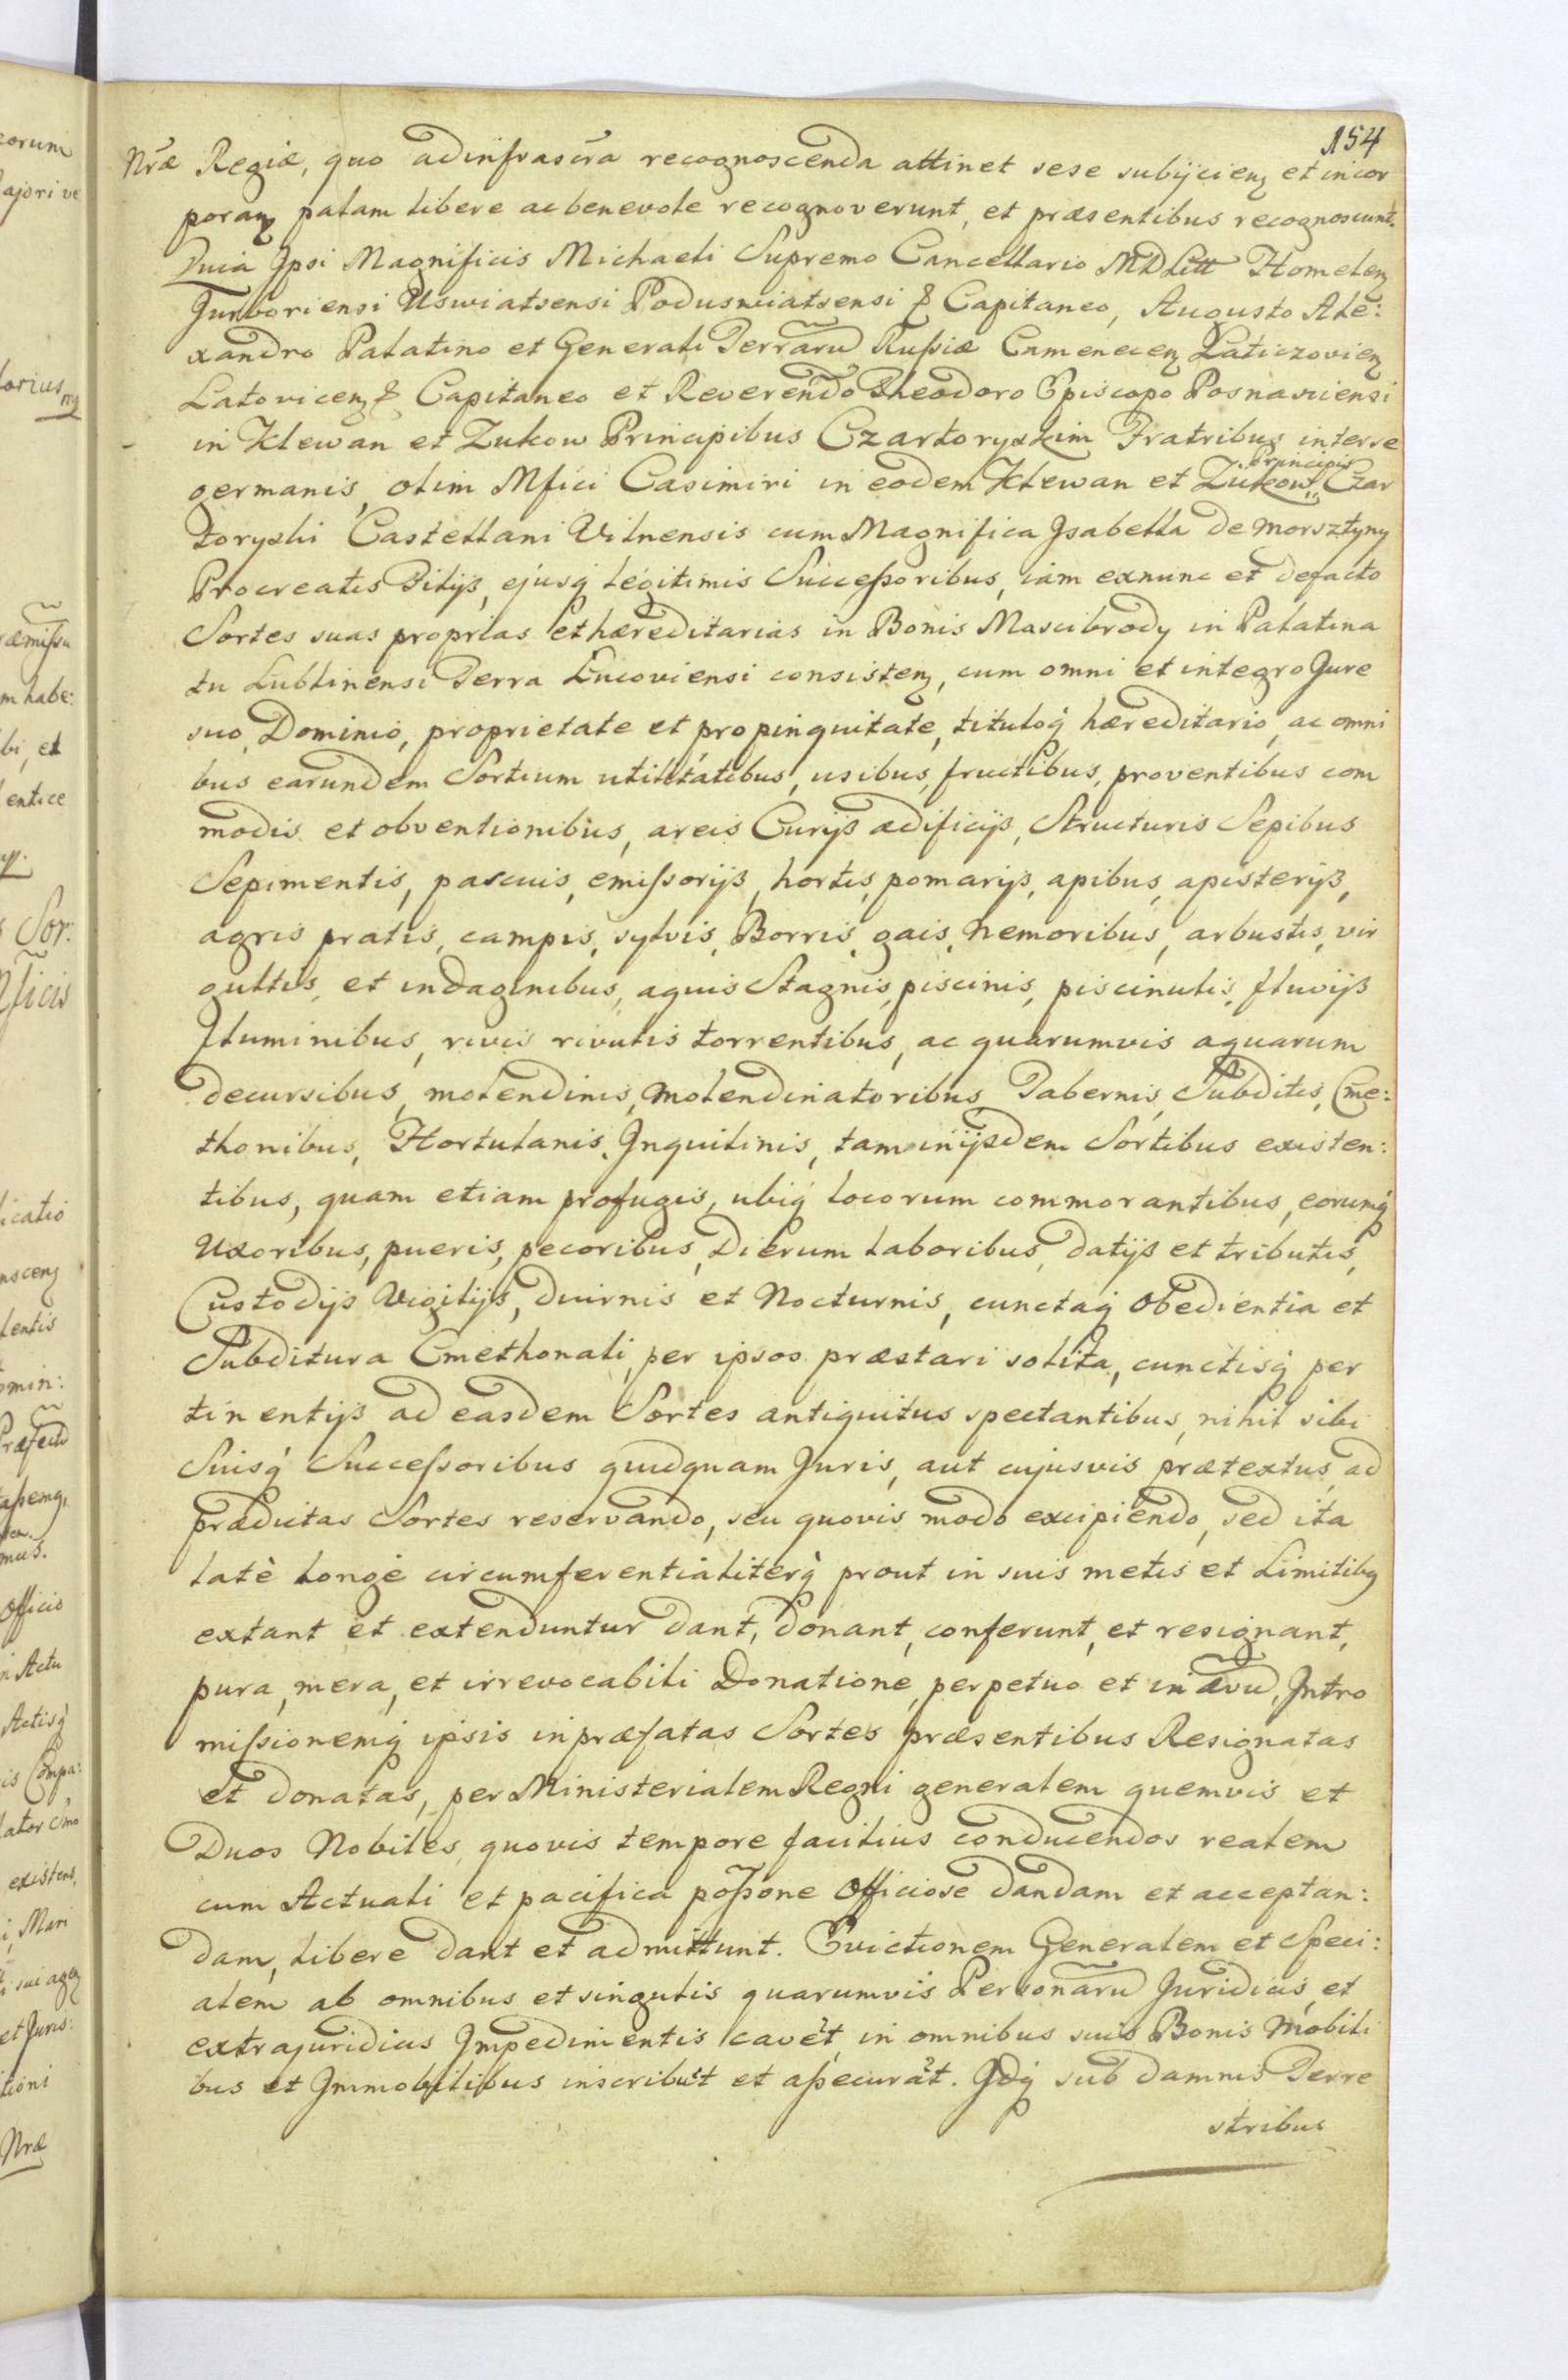 154
Nræ Regiæ, quo adinfrascra recognoscenda attinet sese subijcieɳ et incor
poraɳ palam libere ac benevole recognoverunt, et præsentibus recognoscunt.
Quia Ipsi Magnificis Michaeli Supremo Cancellario MDLitt Homeleɳ
Jurboriensi Uswiatsensi Poduswiatsensi & Capitaneo, Augusto Ale:
xandro Palatino et Generali Terrarũ Rußiæ Cameneceɳ Laticzovieɳ
Latoviceɳ & Capitaneo et Reverendo Theodoro Episcopo Posnaniensi
in Klewan et Zukow Principibus Czartoryskim Fratribus interse
Principis
germanis, olim Mfici Casimiri in eodem Klewan et Zukow Czar
toryski Castellani Vilnensis cum Magnifica Isabella de Morsztyny
Procreatis Filijs, ejusq́ legitimis Succeßoribus, iam exnunc et defacto
Sortes suas proprias et hæreditarias in Bonis Mascibrody in Palatina
tu Lublinensi Terra Lucoviensi consisteɳ, cum omni et integro Jure
suo, Dominio, proprietate et propinquitate, tituloq́ hæreditario, ac omni
bus earundem Sortium utilitatibus, usibus, fructibus, proventibus com
modis et obventionibus, areis Curijs ædificijs, Structuris Sepibus
Sepimentis, pascuis, emißorijs, hortis, pomarijs, apibus, apisterijs,
agris pratis, campis, sylvis, Borris, gais, Nemoribus, arbustis, vir
gultis, et indaginibus, aquis Stagnis, piscinis, piscinulis, fluvijs
Fluminibus, rivis rivulis torrentibus, ac quarumvis aquarum
decursibus, molendinis, Molendinatoribus Tabernis, Subditis, Cme:
thonibus, Hortulanis, Inquilinis, tam inijsdem Sortibus existen:
tibus, quam etiam profugis, ubiq́ locorum commorantibus, eorumq́
Uxoribus, pueris, pecoribus, Dierum laboribus, datijs et tributis,
Custodijs Vigilijs, duirnis et Nocturnis, cunctaq́ obedientia et
Subditura Cmethonali, per ipsos præstari solita, cunctisq́ per
tinentijs ad easdem Sortes antiquitus spectantibus, nihil sibi
Suisq́ Succeßoribus quidquam Juris, aut cujusvis prætextus, ad
prædictas Sortes reservando, seu quovis modo excipiendo, sed ita
latè longè circumferentialiterq́ prout in suis metis et Limitibɜ
extant et extenduntur dant, donant, conferunt, et resignant,
pura, mera, et irrevocabili Donatione, perpetuo et in ævũ, Intro
mißionemq́ ipsis inpræfatas Sortes præsentibus Resignatas
et donatas, per Ministerialem Regni generalem quemvis et
Duos Nobiles, quovis tempore facilius conducendos realem
cum Actuali et pacifica poßone officiose dandam et acceptan:
dam, libere dant et admittunt. Evictionem Generalem et Speci:
alem ab omnibus et singulis quarumvis Personarũ Juridicis, et
extrajuridicis Impedimentis cavẽt, in omnibus suis Bonis Mobili
bus et Immobilibus inscribũt et aßecurãt. Idq́ sub damnis Terre
stribus